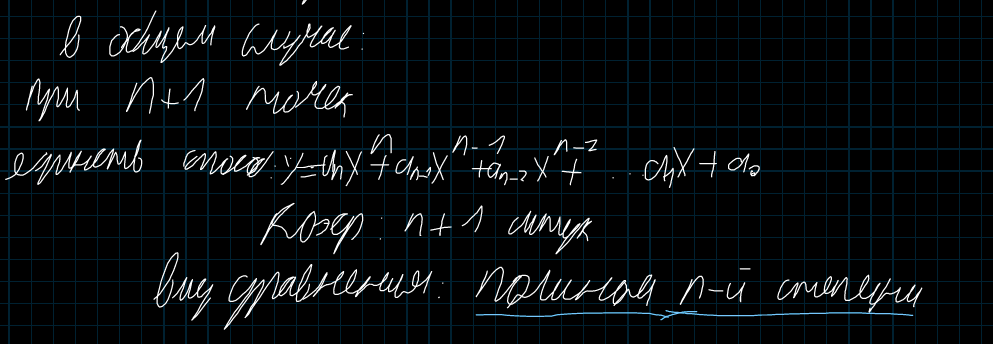 в общем случае:
при n+1 точек
единств способ: y=aₙxⁿ+aₙ₋₁xⁿ⁻¹+aₙ₋₂xⁿ⁻²+...a₁x+a₀
Коэф: n+1 штук
Вид уравнения: полином n-й степени